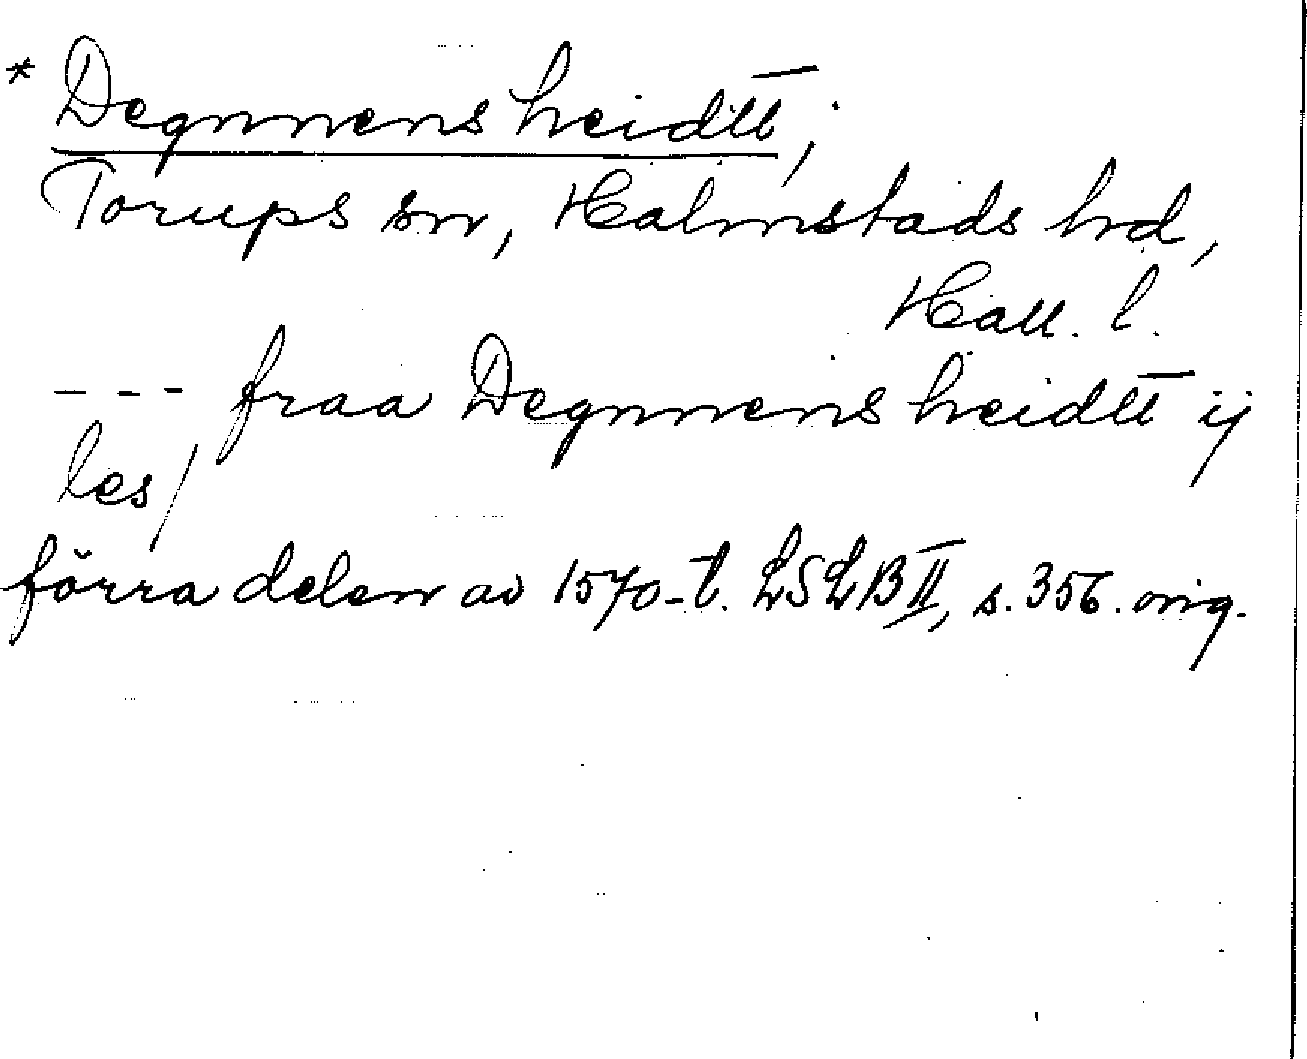 * Degnnens heidtt,
Torups sn, Halmstads hd,
Hall. l.
--- fraa Degnnens heidtt ij
les/
förra delen av 1570-t. LSLB II, s. 356. orig.